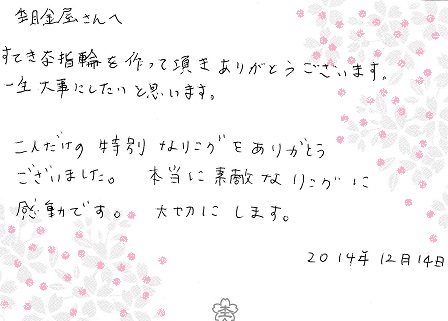 朝金屋さんへ
すてきな指輪を作って頂きありがとうございます。
一生大事にしたいと思います。
二人だけの特別なリングをありがとう
ございました。 本当に素敵なリングに
感動です。 大切にします。
2014年12月14日